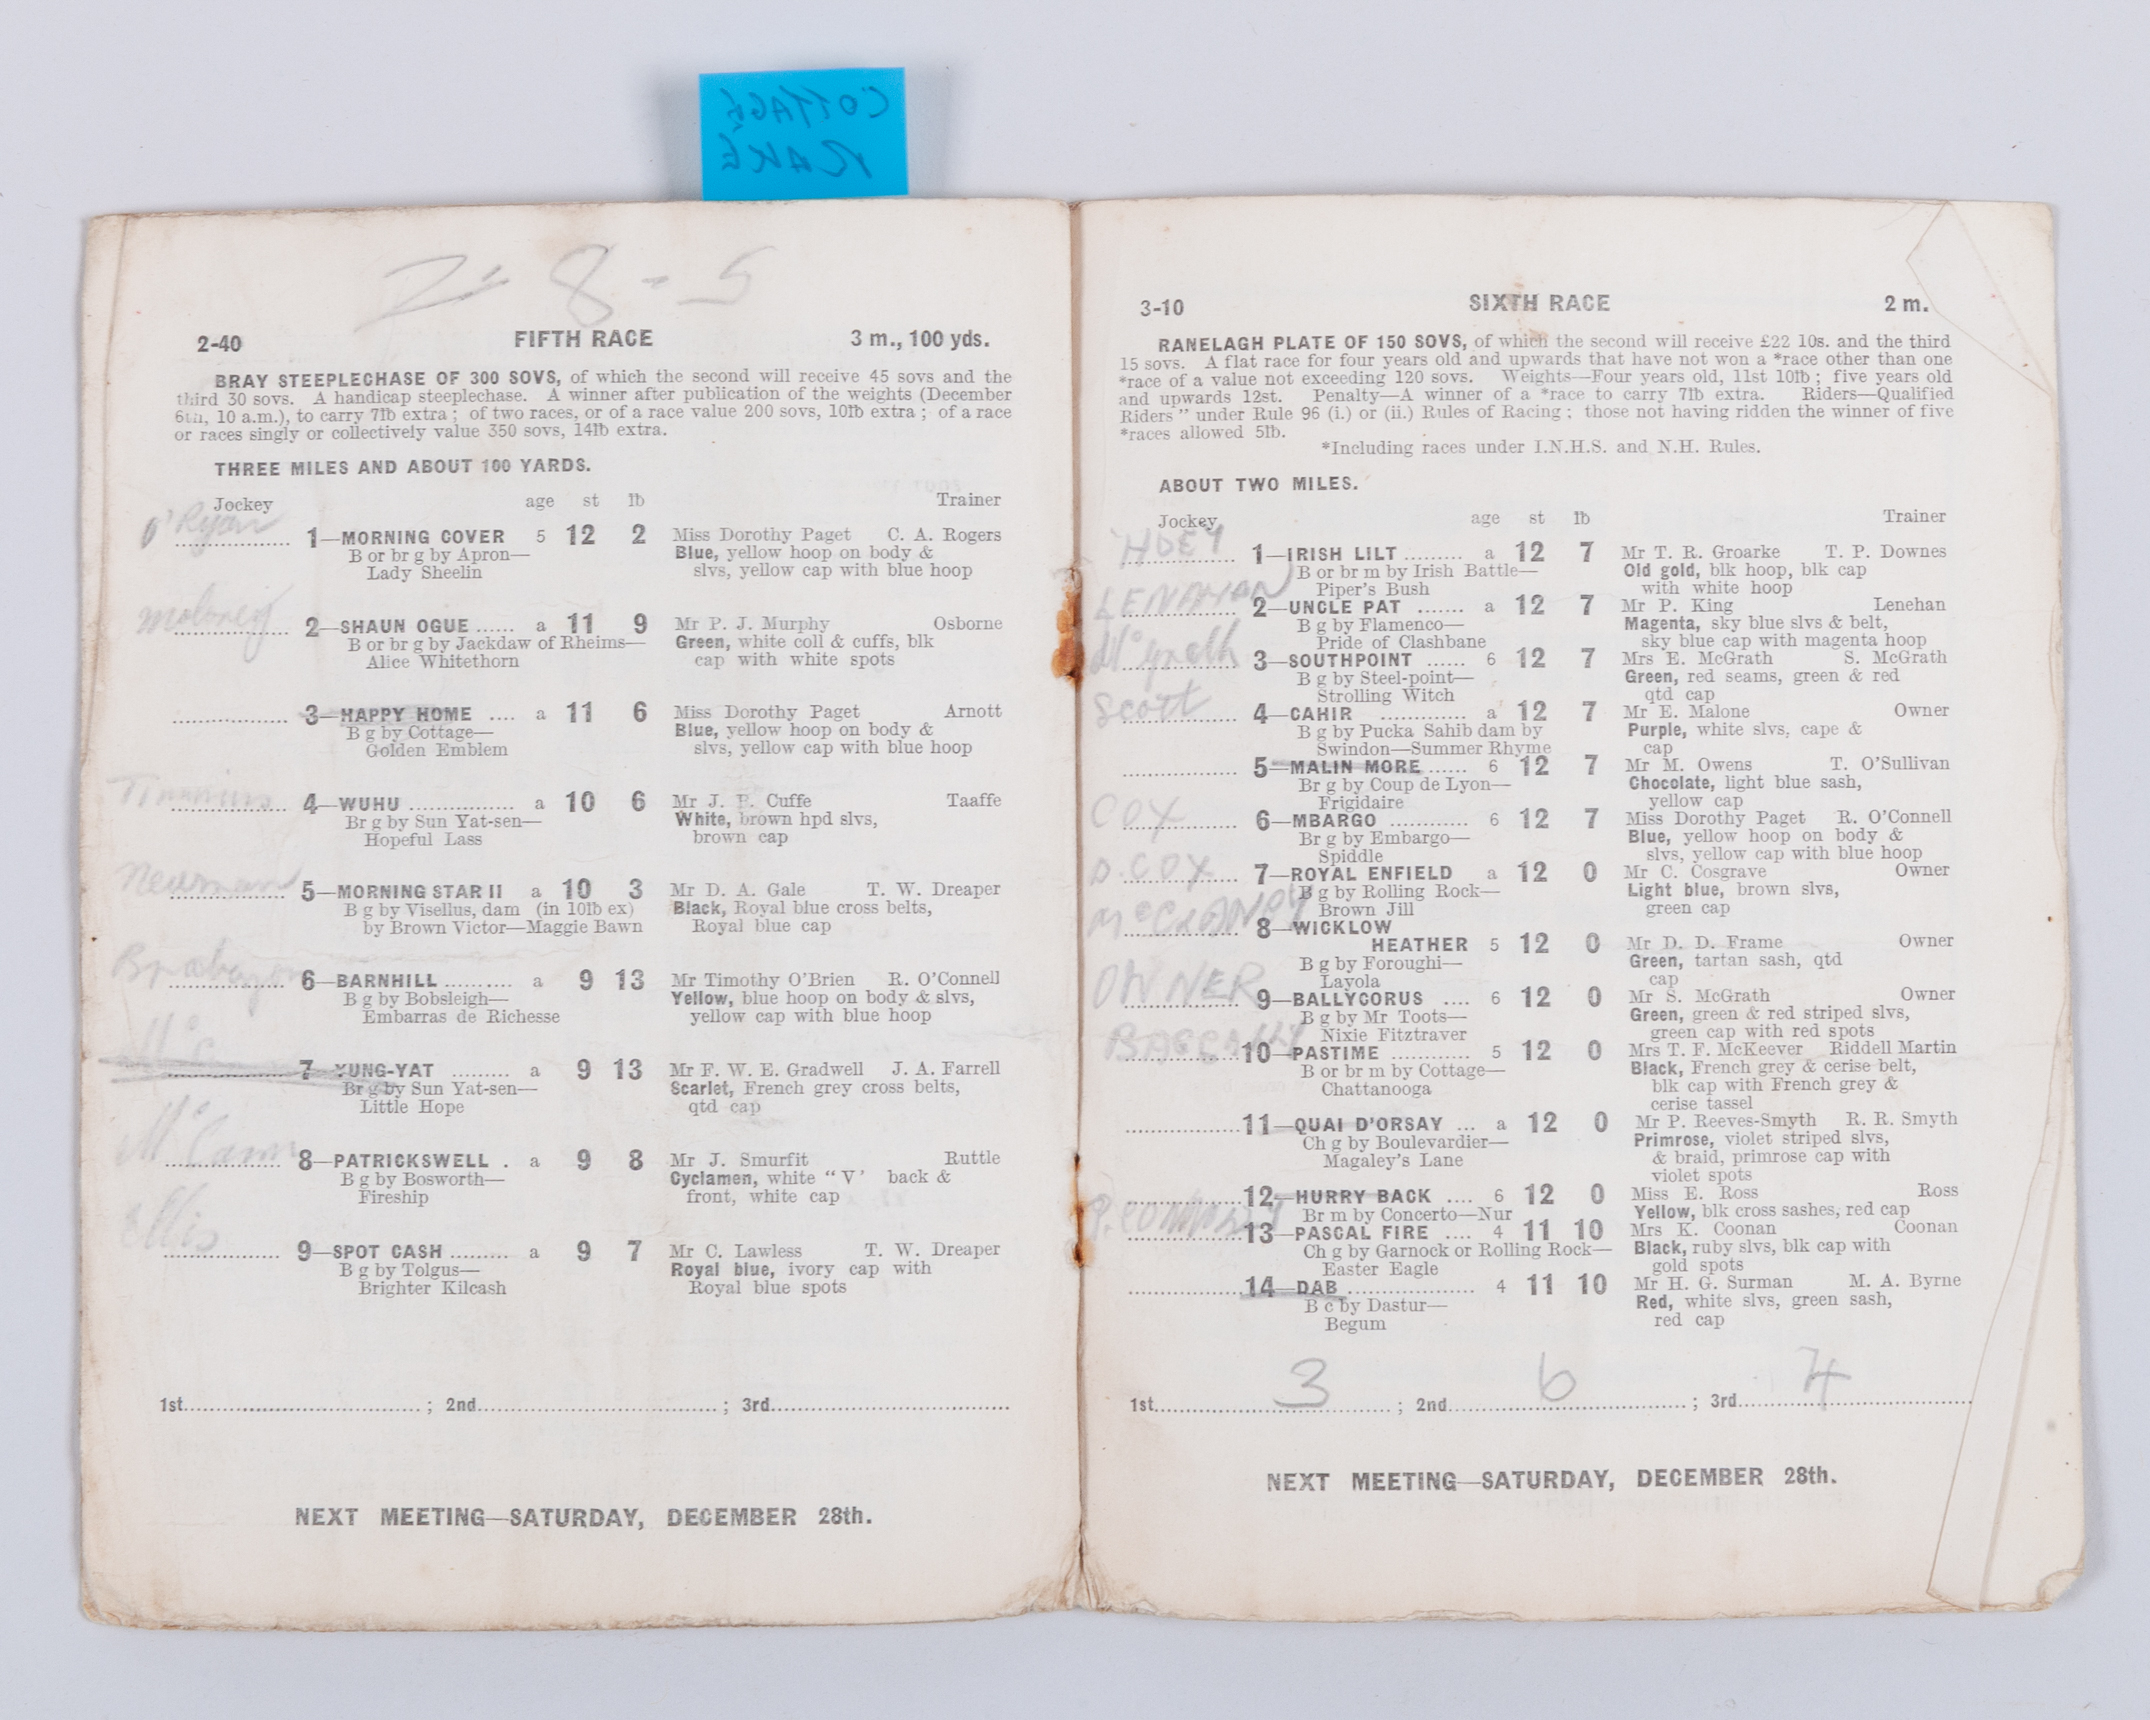 COTTAGE
RAKE
2-8-5
2-40 FIFTH RACE 3 m., 100 yds.
BRAY STEEPLECHASE OF 300 SOVS, of which the second will receive 45 sovs and the
third 30 sovs. A handicap steeplechase. A winner after publication of the weights (December
6th, 10 a.m.), to carry 7lb extra; of two races, or of a race value 200 sovs, 10lb extra; of a race
or races singly or collectively value 350 sovs, 14lb extra.
THREE MILES AND ABOUT 100 YARDS.
Jockey age st lb Trainer
O'Ryan 1—MORNING COVER 5 12 2 Miss Dorothy Paget C. A. Rogers
B or br g by Apron— Blue, yellow hoop on body &
Lady Sheelin slvs, yellow cap with blue hoop
Moloney 2—SHAUN OGUE ...... a 11 9 Mr P. J. Murphy Osborne
B or br g by Jackdaw of Rheims— Green, white coll & cuffs, blk
Alice Whitethorn cap with white spots
3—HAPPY HOME .... a 11 6 Miss Dorothy Paget Arnott
B g by Cottage— Blue, yellow hoop on body &
Golden Emblem slvs, yellow cap with blue hoop
Timmins 4—WUHU ............... a 10 6 Mr J. P. Cuffe Taaffe
Br g by Sun Yat-sen— White, brown hpd slvs,
Hopeful Lass brown cap
Newman 5—MORNING STAR II a 10 3 Mr D. A. Gale T. W. Dreaper
B g by Visellus, dam (in 10lb ex) Black, Royal blue cross belts,
by Brown Victor—Maggie Bawn Royal blue cap
Brabazon 6—BARNHILL .......... a 9 13 Mr Timothy O'Brien R. O'Connell
B g by Bobsleigh— Yellow, blue hoop on body & slvs,
Embarras de Richesse yellow cap with blue hoop
McC 7—YUNG-YAT ......... a 9 13 Mr F. W. E. Gradwell J. A. Farrell
Br g by Sun Yat-sen— Scarlet, French grey cross belts,
Little Hope qtd cap
McCann 8—PATRICKSWELL . a 9 8 Mr J. Smurfit Ruttle
B g by Bosworth— Cyclamen, white "V' back &
Fireship front, white cap
Ellis 9—SPOT CASH ......... a 9 7 Mr C. Lawless T. W. Dreaper
B g by Tolgus— Royal blue, ivory cap with
Brighter Kilcash Royal blue spots
1st.............................. ; 2nd.............................. ; 3rd..............................
NEXT MEETING—SATURDAY, DECEMBER 28th.
3-10 SIXTH RACE 2 m.
RANELAGH PLATE OF 150 SOVS, of which the second will receive £22 10s. and the third
15 sovs. A flat race for four years old and upwards that have not won a *race other than one
*race of a value not exceeding 120 sovs. Weights—Four years old, 11st 10lb; five years old
and upwards 12st. Penalty—A winner of a *race to carry 7lb extra. Riders—Qualified
Riders" under Rule 96 (i.) or (ii.) Rules of Racing; those not having ridden the winner of five
*races allowed 5lb.
*Including races under I.N.H.S. and N.H. Rules.
ABOUT TWO MILES.
Jockey age st lb Trainer
HOEY 1—IRISH LILT ......... a 12 7 Mr T. R. Groarke T. P. Downes
B or br m by Irish Battle— Old gold, blk hoop, blk cap
Piper's Bush with white hoop
LENAHAN 2—UNCLE PAT ....... a 12 7 Mr P. King Lenehan
B g by Flamenco— Magenta, sky blue slvs & belt,
Pride of Clashbane sky blue cap with magenta hoop
McGrath 3—SOUTHPOINT ...... 6 12 7 Mrs E. McGrath S. McGrath
B g by Steel-point— Green, red seams, green & red
Strolling Witch qtd cap
Scott 4—CAHIR ............. a 12 7 Mr E. Malone Owner
B g by Pucka Sahib dam by Purple, white slvs, cape &
Swindon—Summer Rhyme cap
5—MALIN MORE ...... 6 12 7 Mr M. Owens T. O'Sullivan
Br g by Coup de Lyon— Chocolate, light blue sash,
Frigidaire yellow cap
COX 6—MBARGO ............ 6 12 7 Miss Dorothy Paget R. O'Connell
Br g by Embargo— Blue, yellow hoop on body &
Spiddle slvs, yellow cap with blue hoop
D. COX 7—ROYAL ENFIELD a 12 0 Mr C. Cosgrave Owner
B g by Rolling Rock— Light blue, brown slvs,
Brown Jill green cap
8—WICKLOW
HEATHER 5 12 0 Mr D. D. Frame Owner
B g by Foroughi— Green, tartan sash, qtd
Layola cap
OWNER 9—BALLYCORUS .... 6 12 0 Mr S. McGrath Owner
B g by Mr Toots— Green, green & red striped slvs,
Nixie Fitztraver green cap with red spots
10—PASTIME ............ 5 12 0 Mrs T. F. McKeever Riddell Martin
B or br m by Cottage— Black, French grey & cerise belt,
Chattanooga blk cap with French grey &
cerise tassel
11—QUAI D'ORSAY ... a 12 0 Mr P. Reeves-Smyth R. R. Smyth
Ch g by Boulevardier— Primrose, violet striped slvs,
Magaley's Lane & braid, primrose cap with
violet spots
12—HURRY BACK .... 6 12 0 Miss E. Ross Ross
Br m by Concerto—Nur Yellow, blk cross sashes, red cap
13—PASCAL FIRE .... 4 11 10 Mrs K. Coonan Coonan
Ch g by Garnock or Rolling Rock— Black, ruby slvs, blk cap with
Easter Eagle gold spots
14—DAB ................... 4 11 10 Mr H. G. Surman M. A. Byrne
B c by Dastur— Red, white slvs, green sash,
Begum red cap
1st............ 3 ............ ; 2nd............ 6 ............ ; 3rd............ 4 ............
NEXT MEETING—SATURDAY, DECEMBER 28th.